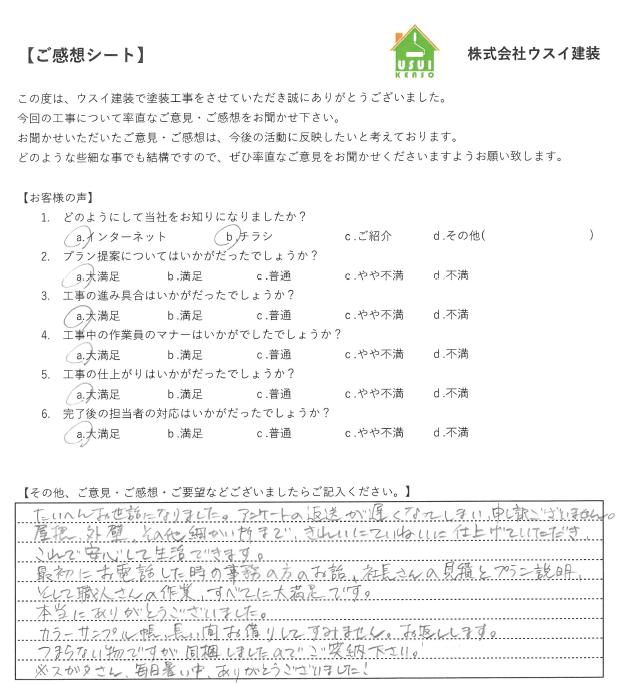 【ご感想シート】
USUI
KENSO
株式会社ウスイ建装
この度は、ウスイ建装で塗装工事をさせていただき誠にありがとうございました。
今回の工事について率直なご意見・ご感想をお聞かせ下さい。
お聞かせいただいたご意見・ご感想は、今後の活動に反映したいと考えております。
どのような些細な事でも結構ですので、ぜひ率直なご意見をお聞かせくださいますようお願い致します。
【お客様の声】
1. どのようにして当社をお知りになりましたか？
a.インターネット b.チラシ c.ご紹介 d.その他( )
2. プラン提案についてはいかがだったでしょうか？
a.大満足 b.満足 c.普通 c.やや不満 d.不満
3. 工事の進み具合はいかがだったでしょうか？
a.大満足 b.満足 c.普通 c.やや不満 d.不満
4. 工事中の作業員のマナーはいかがでしたでしょうか？
a.大満足 b.満足 c.普通 c.やや不満 d.不満
5. 工事の仕上がりはいかがだったでしょうか？
a.大満足 b.満足 c.普通 c.やや不満 d.不満
6. 完了後の担当者の対応はいかがだったでしょうか？
a.大満足 b.満足 c.普通 c.やや不満 d.不満
【その他、ご意見・ご感想・ご要望などございましたらご記入ください。】
たいへんお世話になりました。アンケートの返送が遅くなってしまい、申し訳ございません。
屋根、外壁、その他細かい所まで、きれいにていねいに仕上げていただき
これで安心して生活できます。
最初にお電話した時の事務の方のお話、社長さんの見積とプラン説明、
そして職人さんの作業、すべてに大満足です。
本当にありがとうございました。
カラーサンプル帳、長い間お借りしてすみません。お返しします。
つまらない物ですが同梱しましたのでご笑納下さい。
※スガタさん、毎日暑い中、ありがとうございました！